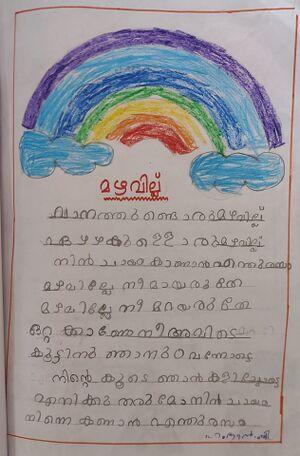 മഴവില്ല്
മാനത്തുണ്ടൊരുമഴവില്ല്
ഏഴഴകുള്ളൊരുമഴവില്ല്
നിൻ ചായം കാണാൻ എന്തുരസം
മഴവില്ലേ നീ മായരുതേ
മഴവില്ലേ നീ മറയരുതേ
നീ അവിടെ
കൂട്ടിന് ഞാനും വന്നോട്ടെ
നിന്റെ കൂടെ ഞാൻ കളിച്ചോട്ടെ
എനിക്കു തരുമോ നിൻ ചായം
നിന്നെ കണാൻ എന്തുരസം